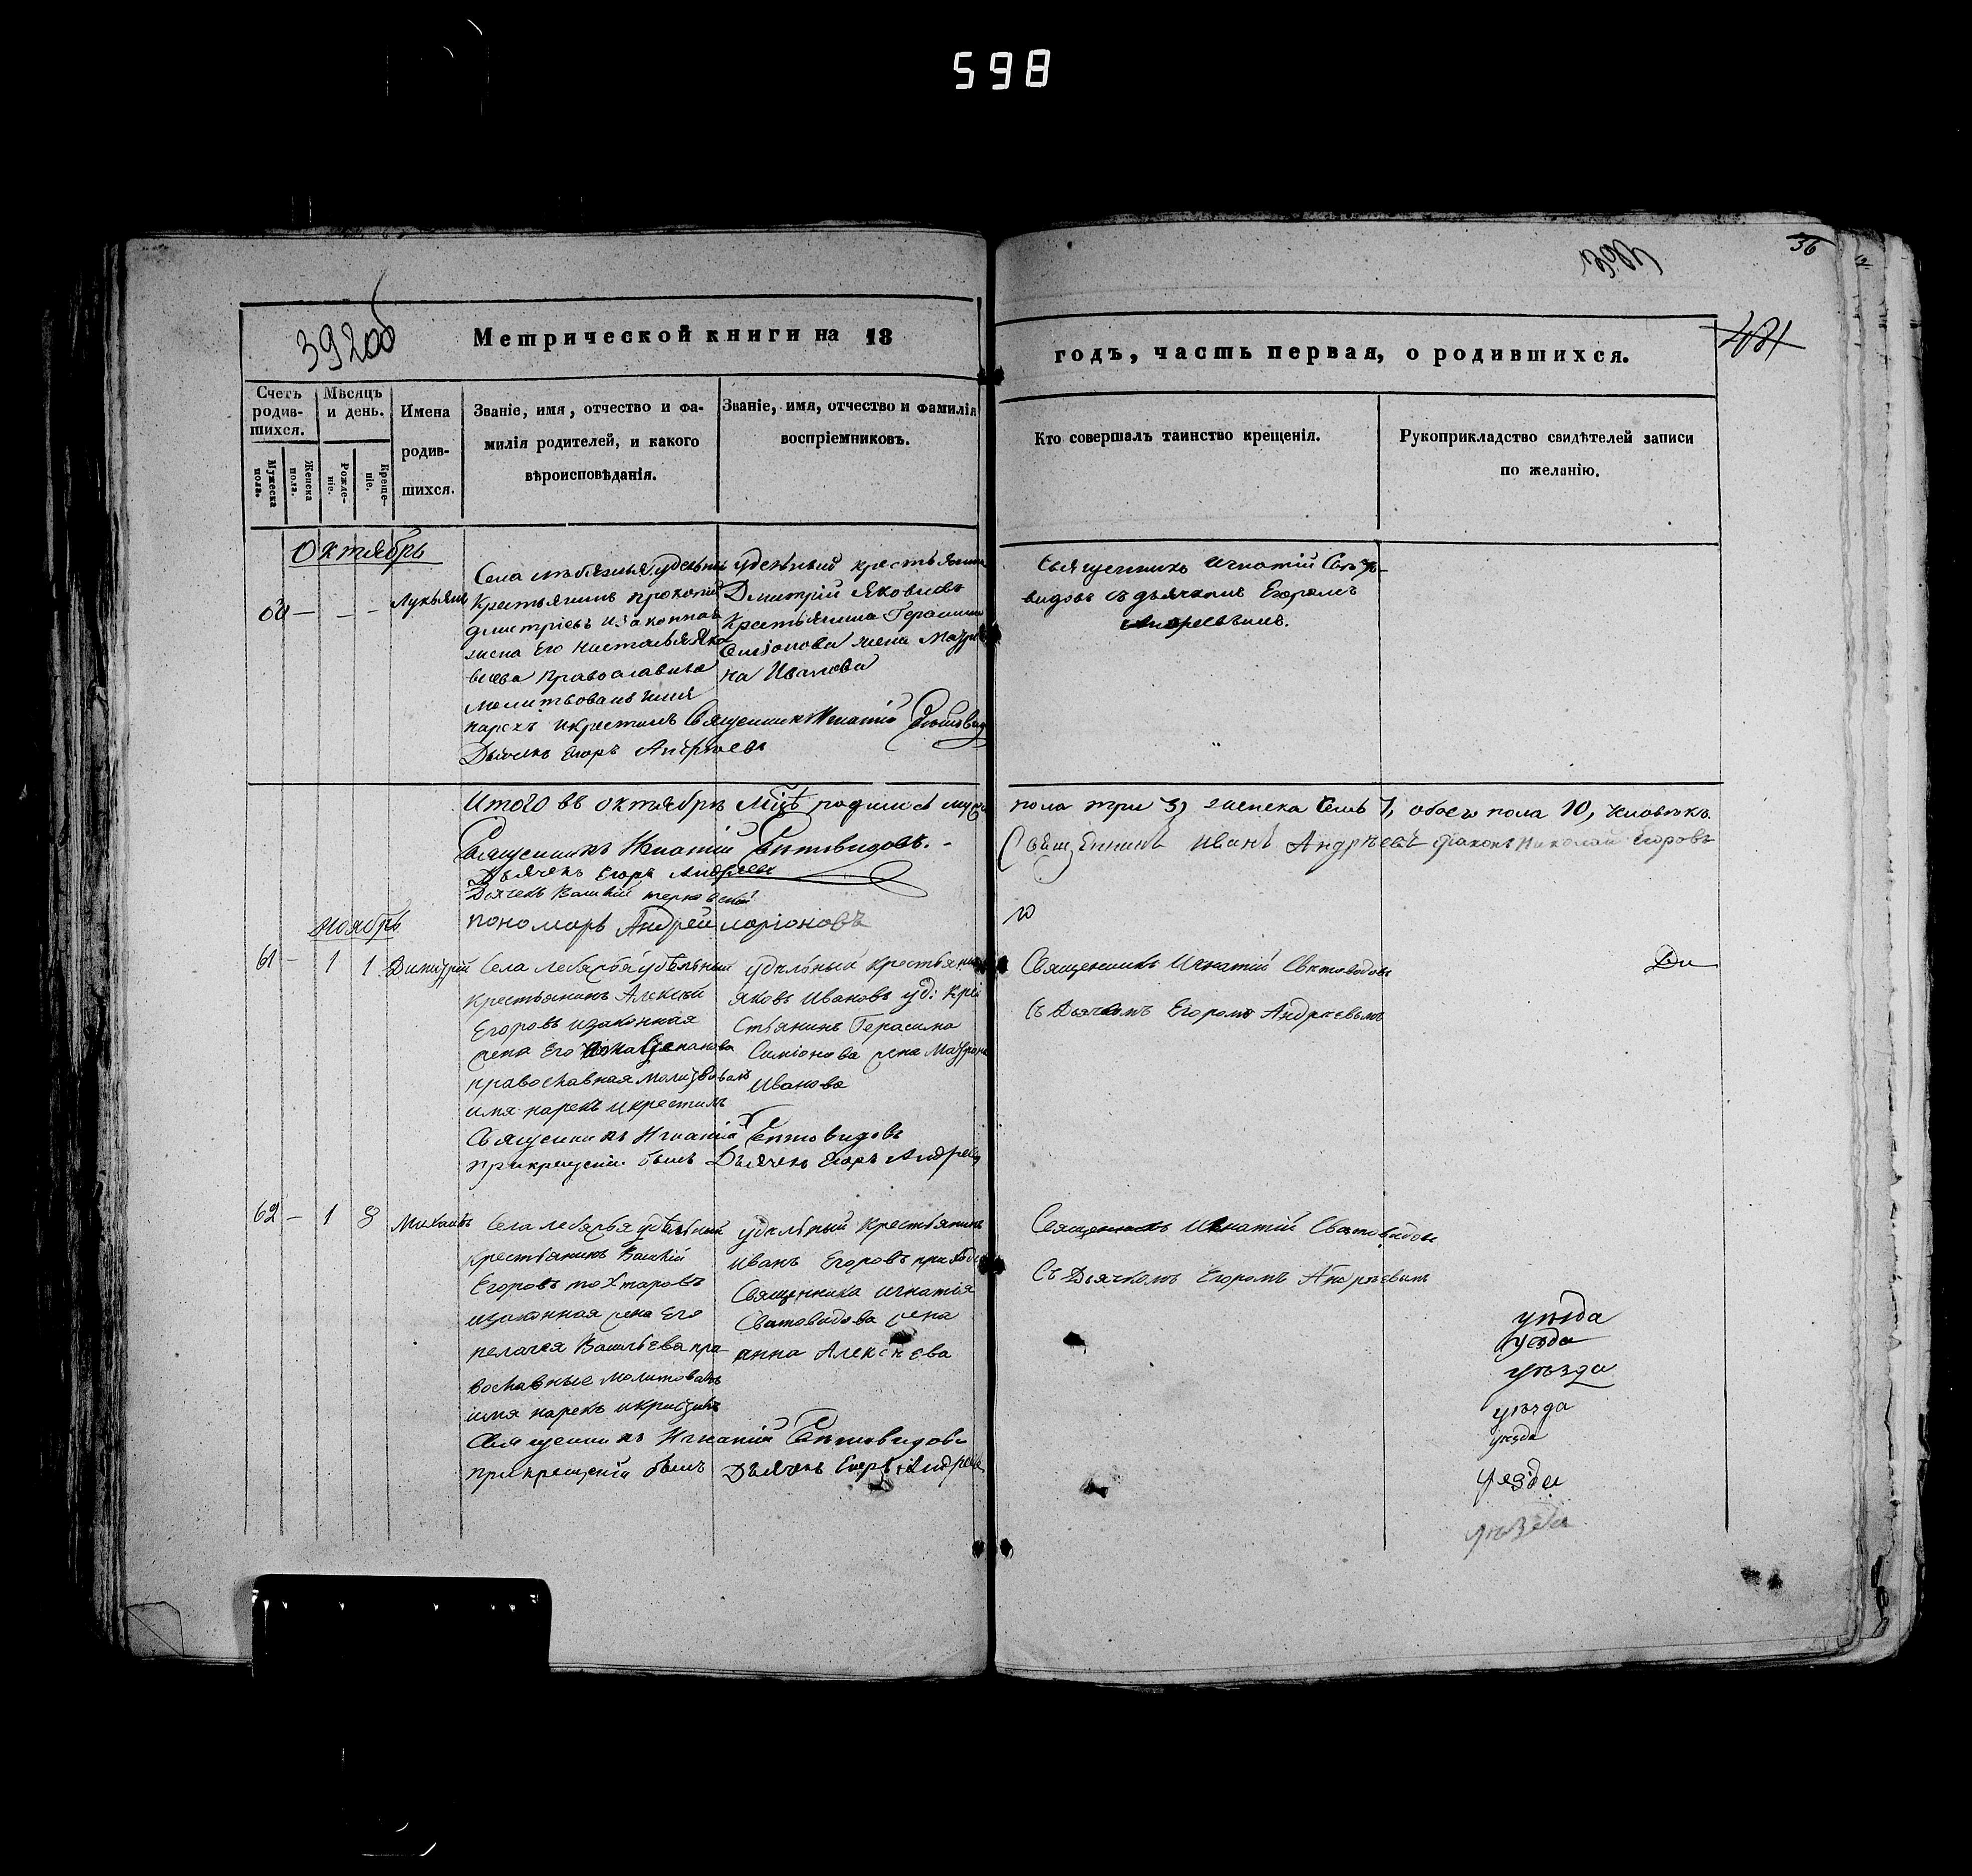 598
36
392 об
Метрической книги на 18
годъ, часть первая, о родившихся.
Счетъ родив-шихся.
Мѣсяцъ и день.
Имена родив-шихся.
Званіе, имя, отчество и фа-
милія родителей, и какого
вѣроисповѣданія.
Званіе, имя, отчество и фамилія
воспріемниковъ.
Кто совершалъ таинство крещенія.
Рукоприкладство свидѣтелей записи
по желанію.
Мужеска пола.
Женска пола.
Рожде-ніе.
Креще-ніе.
Октябрь
60 — — —
Села удельный
крестьянинъ прокопий
дмитріевъ изаконная
жена его Яко
влева православная
молитвовалъ имя
нарекъ икрестилъ Священникъ Игнатій
Дьячекъ Егоръ Андреевъ
удельный крестьянинъ
Дмитрій Яковлевъ
крестьянина Герасима
Симіонова жена Матре
на Иванова
Священникъ Игнатій Свято-
видовъ съ дьячкомъ Егоромъ
Андреевымъ.
Итого въ октябрѣ мцѣ родилось муж
пола три 3, женска семь 7, обоего пола 10, человѣкъ.
Священникъ Игнатій Святовидовъ.
Священникъ Иванъ Андрѣевъ Николай Егоровъ
Дьячекъ Егоръ Андреевъ
Дьячекъ
пономарь Андрей ларіоновъ
ю
ноябрь
61 — 1 1 Димитрій
Села лебяжья удѣльный
крестьянинъ Алексѣй
Егоровъ изаконная
жена Его Степанова
православная молитвовалъ
имя нарекъ икрестилъ
Священникъ Игнатій Святовидовъ
прикрещеніи былъ Дьячекъ Егоръ Андреевъ
удѣльный крестьянинъ
яковъ Ивановъ уд: кре
стьянинъ Герасима
Симіонова жена Матрона
Иванова
Священникъ Игнатій Святовидовъ
Съ Дьячкомъ Егоромъ Андреевымъ
Ди
62 — 1 8 Михаилъ
Села лебяжья удѣльный
крестьянинъ
Егоровъ
изаконная жена Его
пелагея Васильева пра-
вославные молитвовалъ
имя нарекъ икрестилъ
Священникъ Игнатій Святовидовъ
прикрещеніи былъ Дьячекъ Егоръ Андреевъ
удѣльный крестьянинъ
иванъ Егоровъ
Священника игнатія
Святовидова жена
анна Алексѣева
Священникъ Игнатій Святовидовъ
Съ Дьячкомъ Егоромъ Андрѣевымъ
уѣзда
уѣзда
уѣзда
уѣзда
уѣзда
уѣзда
уѣзда